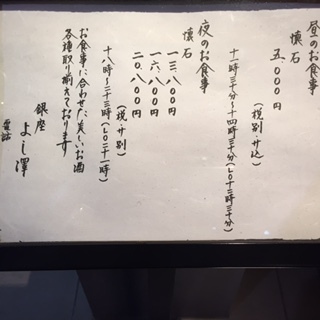 昼のお食事
懐石
五、000円
(税別・サ込)
十一時三十分〜十四時三十分(L0十三時三十分)
夜のお食事
懐石
一三、八00円
一六、八00円
二0、八00円
(税・サ別)
十八時〜二十三時(L0二十一時)
お食事に合わせた美しいお酒
各種取り揃えております
銀座
よし澤
電話